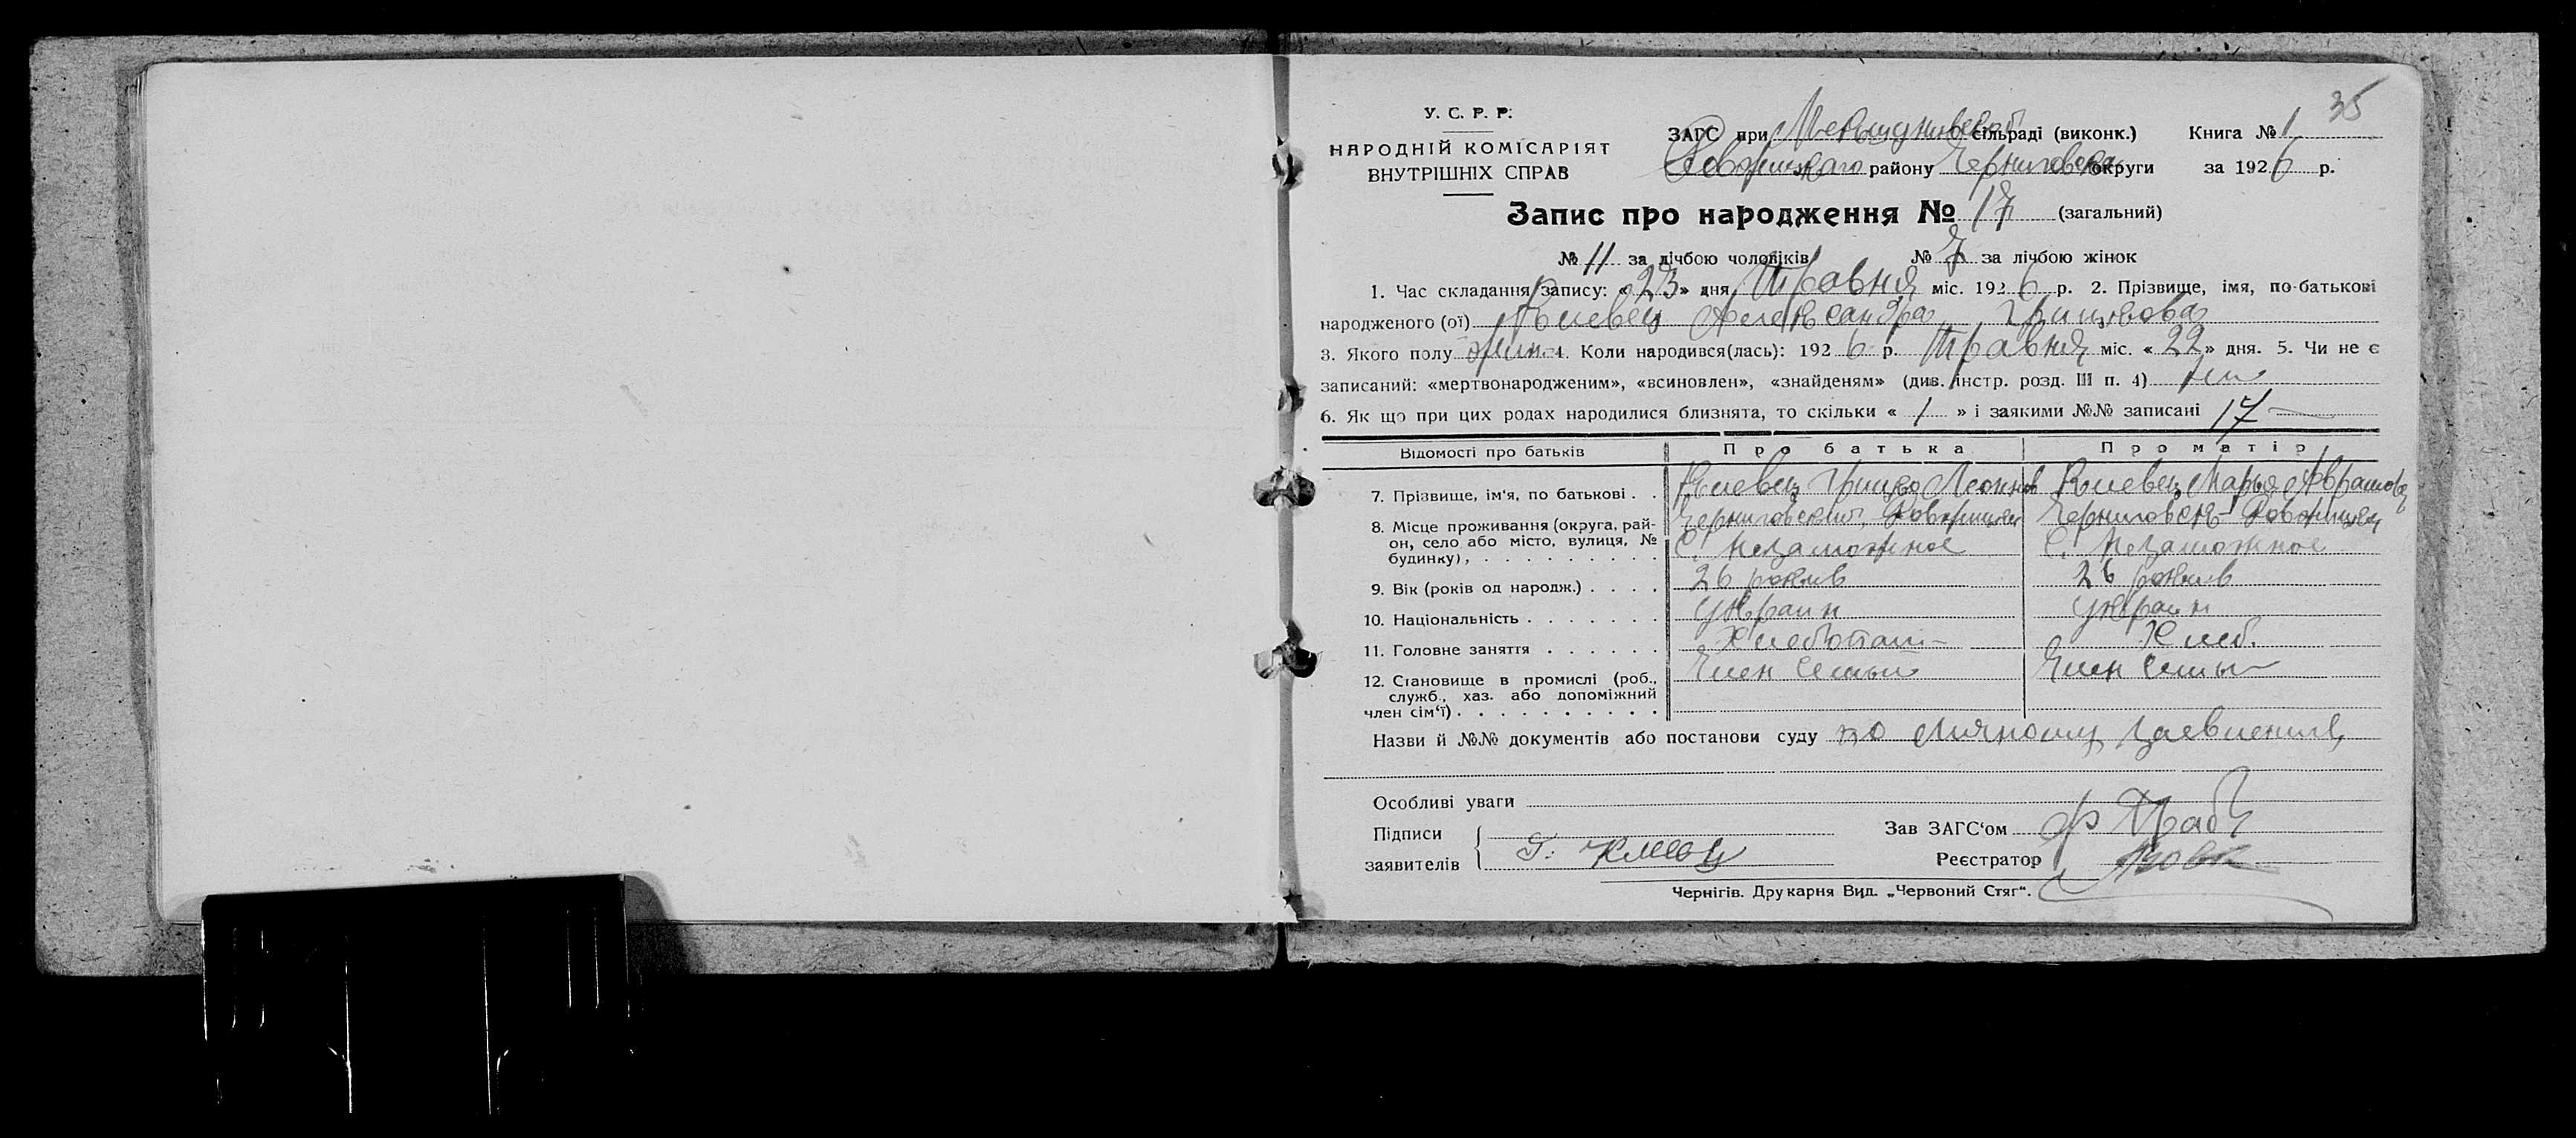 35
У. С. Р. Р.
НАРОДНІЙ КОМІСАРІЯТ
ВНУТРІШНІХ СПРАВ
ЗАГС при сільраді (виконк.) Книга № 1
району Черниговской округи за 1926 р.
Запис про народження № 17 (загальний)
№ 11 за лічбою чоловіків № 7 за лічбою жінок
1. Час складання запису: «23» дня Травня міс. 1926 р. 2. Прізвище, імя, по-батькові
народженого (ої) Клевец Александра Грицкова
3. Якого полу жин. 4. Коли народився(лась): 1926 р. Травня міс. «22» дня. 5. Чи не є
записаний: «мертвонародженим», «всиновлен», «знайденям» (див. інстр. розд. III п. 4)
6. Як що при цих родах народилися близнята, то скільки « 1 » і заякими №№ записані 17
Відомості про батьків Про батька Про матір
7. Прізвище, ім'я, по батькові . . Клевец Грицко Леонтов Клевец Марья Аврамова
8. Місце проживання (округа, рай-
он, село або місто, вулиця, №
будинку), . . . . . . . . . С. Незаможное С. Незаможное
9. Вік (років од народж.) . . . . 26 рокив 26 рокив
10. Національність . . . . . . . Украин Украин
11. Головне заняття . . . . . . Хлебопаш Хлеб.
12. Становище в промислі (роб.,
служб., хаз. або допоміжний
член сім'ї) . . . . . . . . . . Член семьи Член семьи
Назви й №№ документів або постанови суду по личному заевления
Особливі уваги
Підписи
заявителів Г. Клевец
Зав ЗАГС'ом
Реєстратор
Чернігів. Друкарня Вид. „Червоний Стяг“.